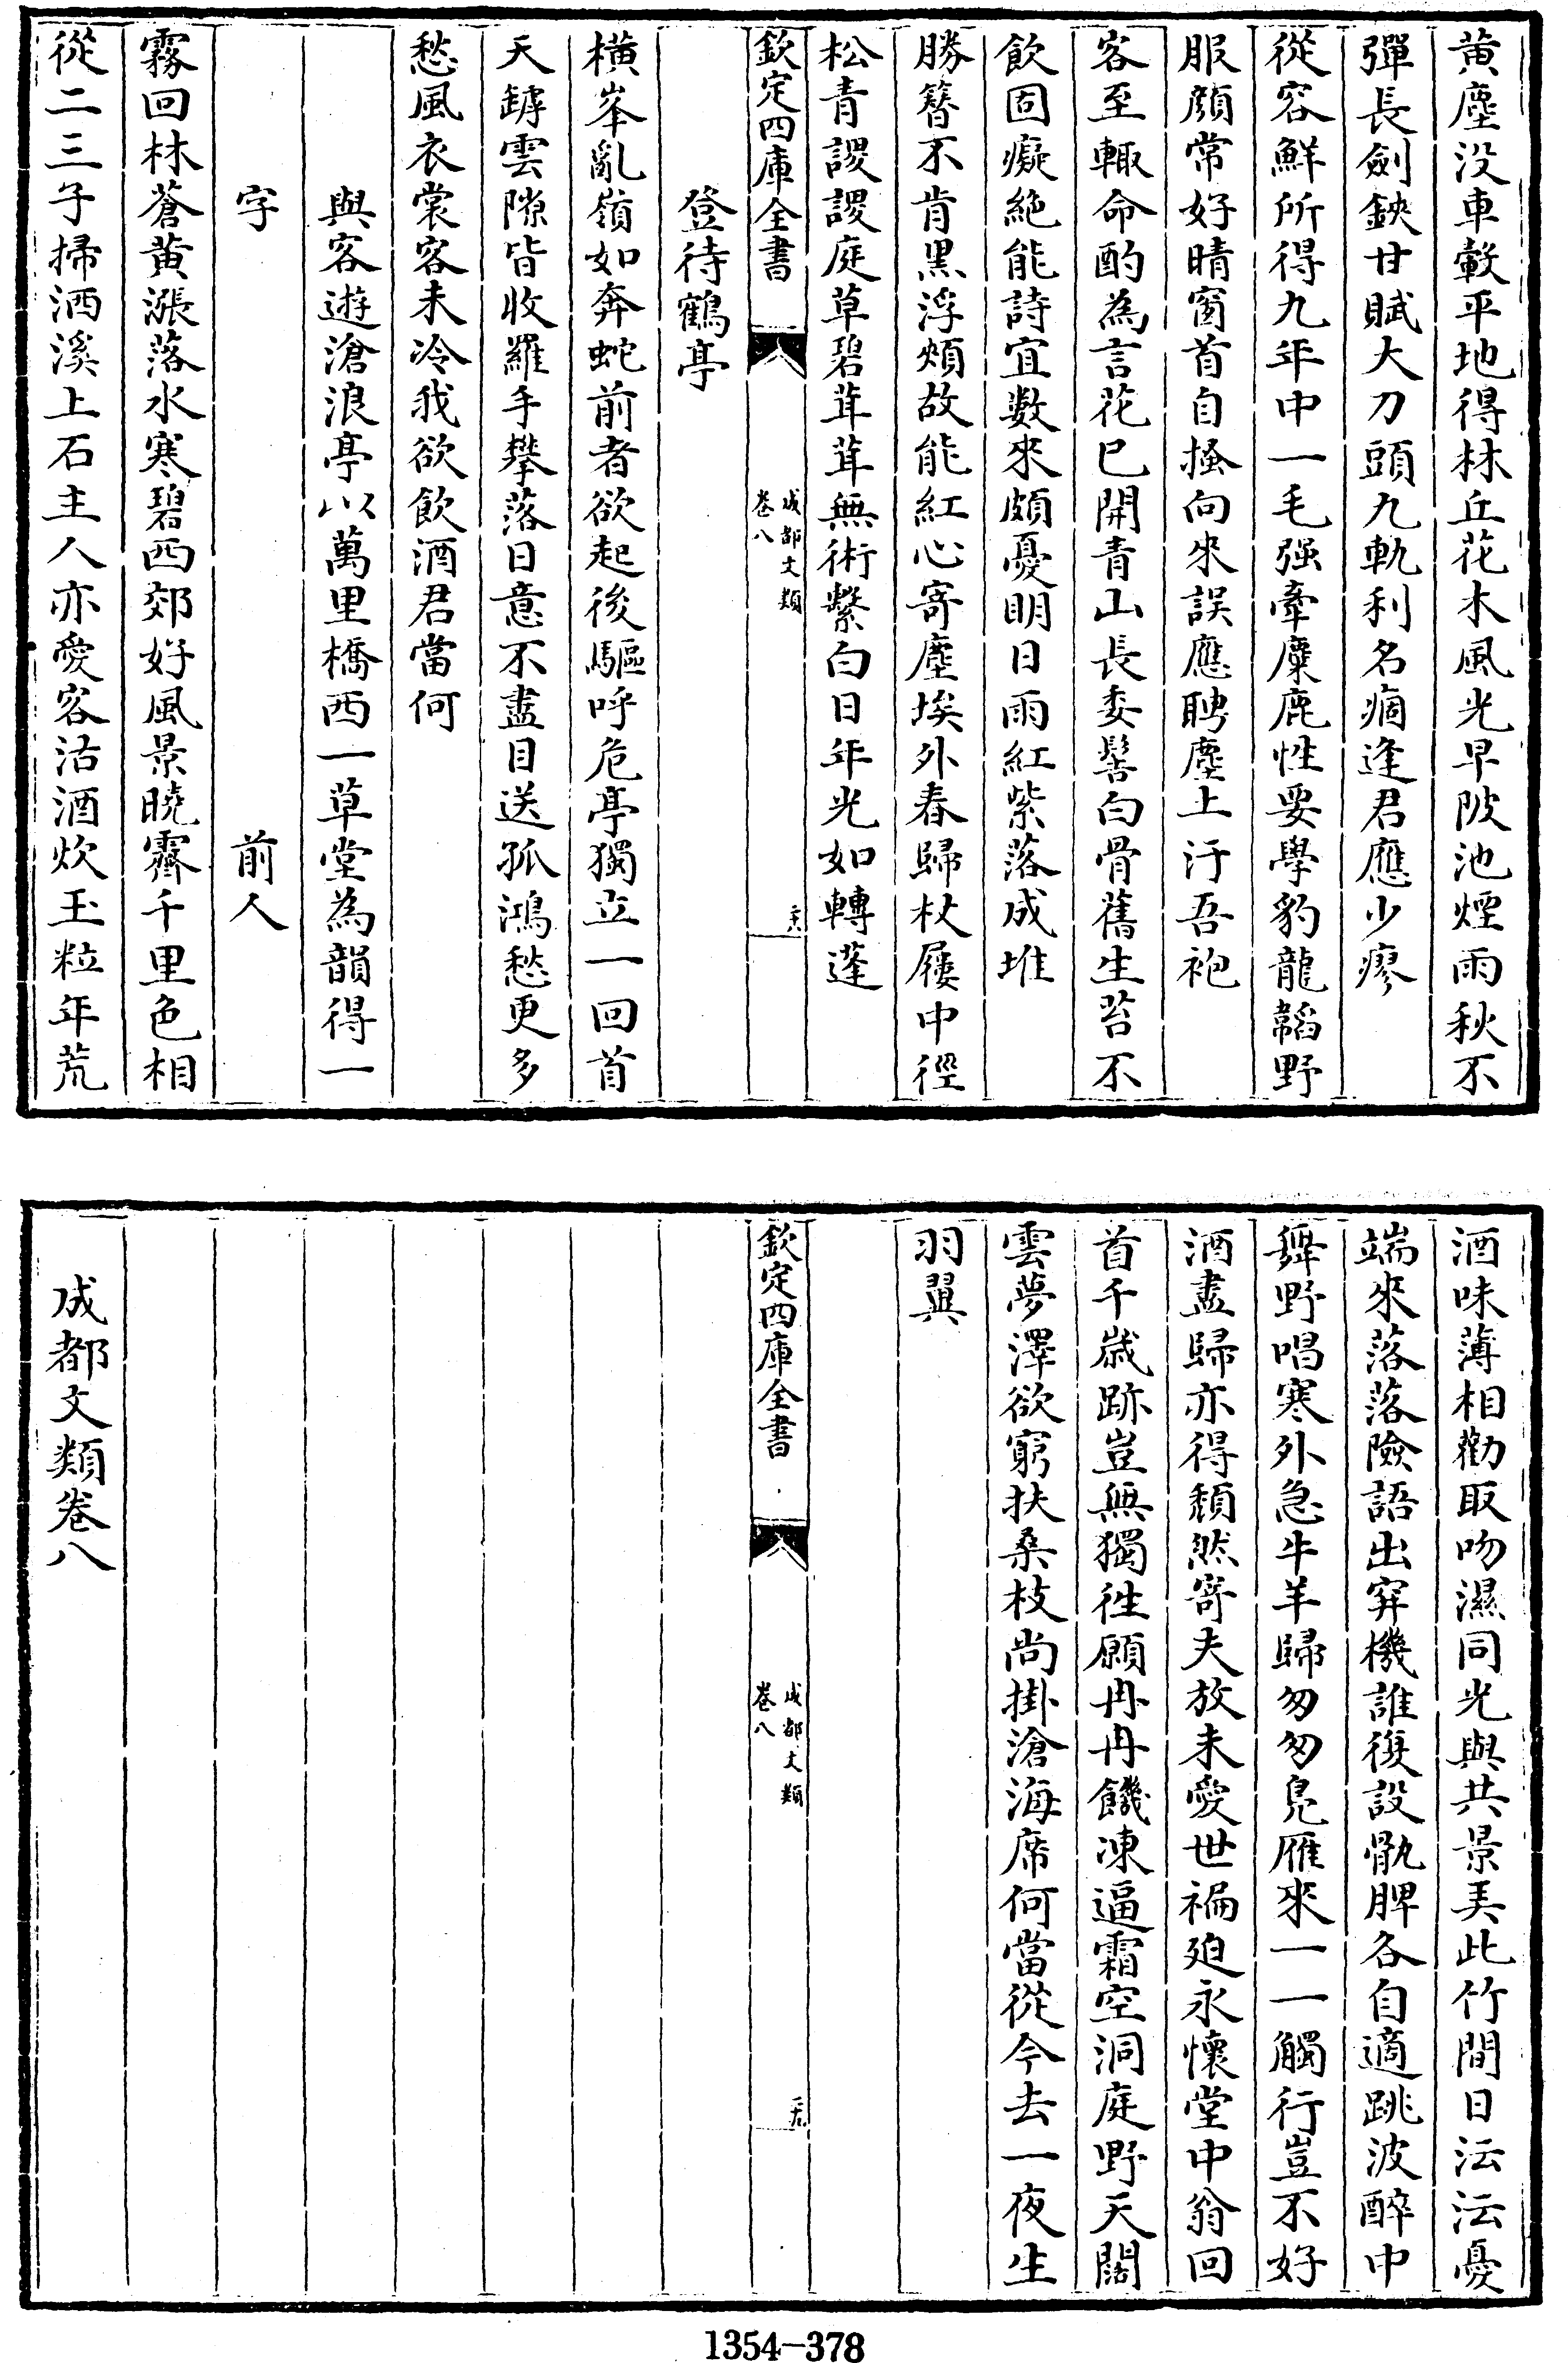 黄塵没車轂平地得林丘花木風光早陂池煙雨秋不
彈長劍鋏甘賦大刀頭九軌利名痼逢君應少瘳
從容鮮所得九年中一毛强牽麋鹿性要學豹龍韜野
服顔常好晴窗首自搔向來誤應聘塵上汙吾袍
客至輙命酌為言花已開青山長委髻白骨舊生苔不
飲固癡絶能詩宜數來頗憂明日雨紅紫落成堆
勝簪不肯黒浮頰故能紅心寄塵埃外春歸杖屨中徑
松青謖謖庭草碧茸茸無術繫白日年光如轉蓬
欽定四庫全書
成都文類
卷八
二六
登待鶴亭
横峯亂嶺如奔蛇前者欲起後驅呼危亭獨立一回首
天罅雲隙皆收羅手攀落日意不盡目送孤鴻愁更多
愁風衣裳客未冷我欲飲酒君當何
與客遊滄浪亭以萬里橋西一草堂為韻得一
字
前人
霧回林蒼黄漲落水寒碧西郊好風景曉霽千里色相
從二三子掃洒溪上石主人亦愛客沽酒炊玉粒年荒
酒味薄相勸取吻濕同光與共景美此竹間日沄沄憂
端來落落險語出穽機誰復設骫脾各自適跳波醉中
舞野唱寒外急牛羊歸匆匆鳬雁來一一觸行豈不好
酒盡歸亦得頽然寄夫放未愛世褊廹永懷堂中翁回
首千歳跡豈無獨徃願冉冉饑凍逼霜空洞庭野天闊
雲夢澤欲窮扶桑枝尚掛滄海席何當從今去一夜生
羽翼
欽定四庫全書
成都文類
卷八
成都文類卷八
1354-378